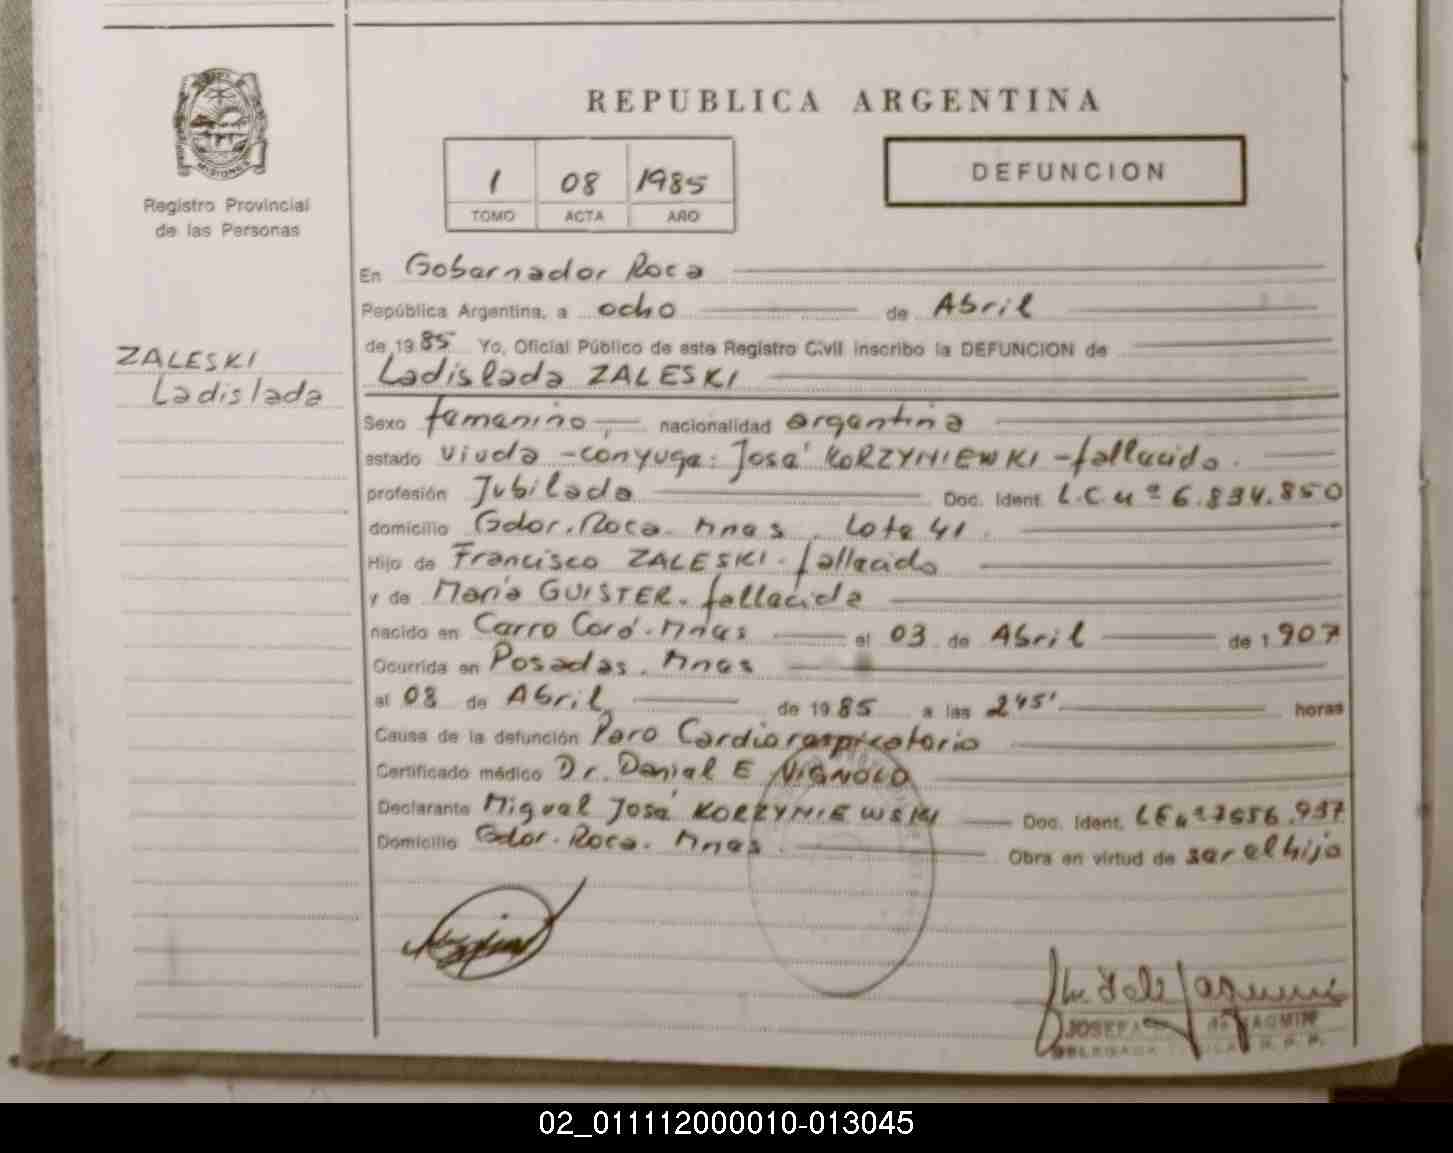 REPUBLICA ARGENTINA
1 08 1985
TOMO ACTA AÑO
DEFUNCION
MISIONES
Registro Provincial
de las Personas
ZALESKI
Ladislada
En Gobernador Roca
República Argentina, a ocho de Abril
de 1985 Yo, Oficial Público de este Registro Civil inscribo la DEFUNCION de
Ladislada ZALESKI
Sexo femenino, nacionalidad argentina
estado viuda - conyuge: José KORZYNIEWKI - fallecido.
profesión Jubilada Doc. Ident. L.C nº 6.834.850
domicilio Gdor. Roca. Mnes. Lote 41.
Hijo de Francisco ZALESKI - fallecido
y de María GUISTER. fallecida
nacido en Cerro Corá. Mnes el 03 de Abril de 1907
Ocurrida en Posadas. Mnes
al 08 de Abril de 1985 a las 245' horas
Causa de la defunción Paro Cardiorespiratorio
Certificado médico Dr. Daniel E VIGNOLO
Declarante Miguel José KORZYNIEWSKI Doc. Ident. LE nº 7656.937
Domicilio Gdor. Roca. Mnes. Obra en virtud de ser el hijo
JOSEFA de JAGMIN
DELEGADA R. P. P.
02_011112000010-013045